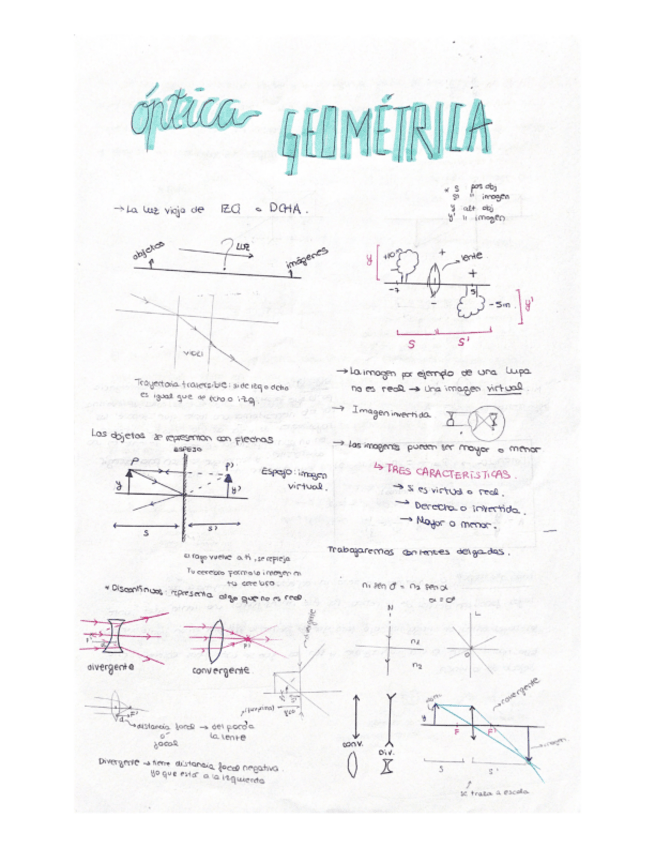 óptica GEOMÉTRICA
* s pos obj
s' " imagen
y alt obj
y' " imagen
→ La luz viaja de IZQ a DCHA.
objetos
luz
imágenes
y
+10
+
lente
-
-7
+
5
-5m
y'
s
s'
vidrio
Trayectoria traversible: si de izq a dcha
es igual que de dcha a izq.
→ La imagen por ejemplo de una lupa
no es real → Una imagen virtual.
→ Imagen invertida
→ Las imágenes pueden ser mayor o menor
↳ TRES CARACTERÍSTICAS.
→ Si es virtual o real.
→ Derecha o invertida.
→ Mayor o menor.
Los objetos se representan con flechas
ESPEJO
P
P'
y
y'
s
s'
Espejo: imagen
virtual.
El rayo vuelve a ti, se refleja
Tu cerebro forma la imagen en
tu cerebro.
* Discontinuos: representa algo que no es real
Trabajaremos con lentes delgadas.
N
n1
n2
L
O
divergente
F'
convergente
convergente
F'
distancia focal → del foco a
o
focal
la lente
Divergente → tiene distancia focal negativa
ya que está a la izquierda
conv.
Div.
y
F
F'
convergente
imagen
s
s'
se traza a escala